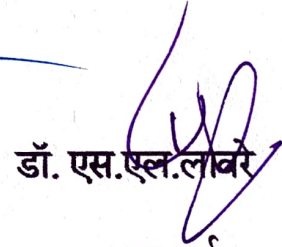 डॉ. एस.एल.लावरे